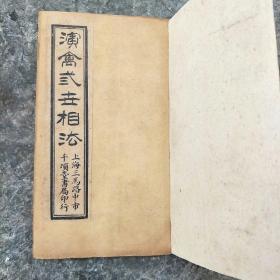 演禽三世相法
上海三馬路中市
千頃堂書局印行